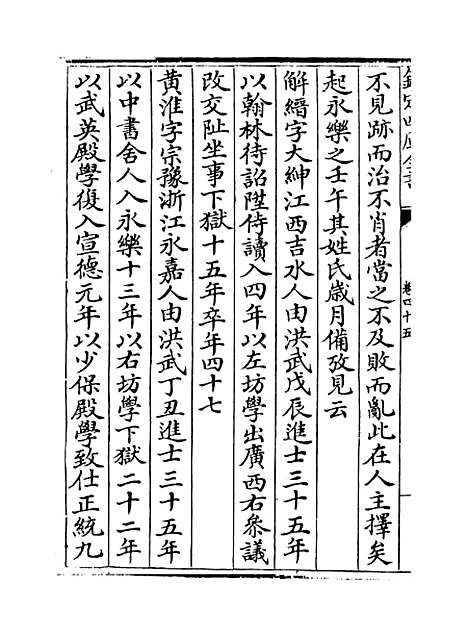 欽定四庫全書
卷四十五
不見跡而治不肖者當之不及敗而亂此在人主擇矣
起永樂之壬午其姓氏歲月備攷見云
解縉字大紳江西吉水人由洪武戊辰進士三十五年
以翰林待詔陞侍讀入四年以左坊學出廣西右參議
改交阯坐事下獄十五年卒年四十七
黃淮字宗豫浙江永嘉人由洪武丁丑進士三十五年
以中書舍人入永樂十三年以右坊學下獄二十二年
以武英殿學復入宣德元年以少保殿學致仕正統九